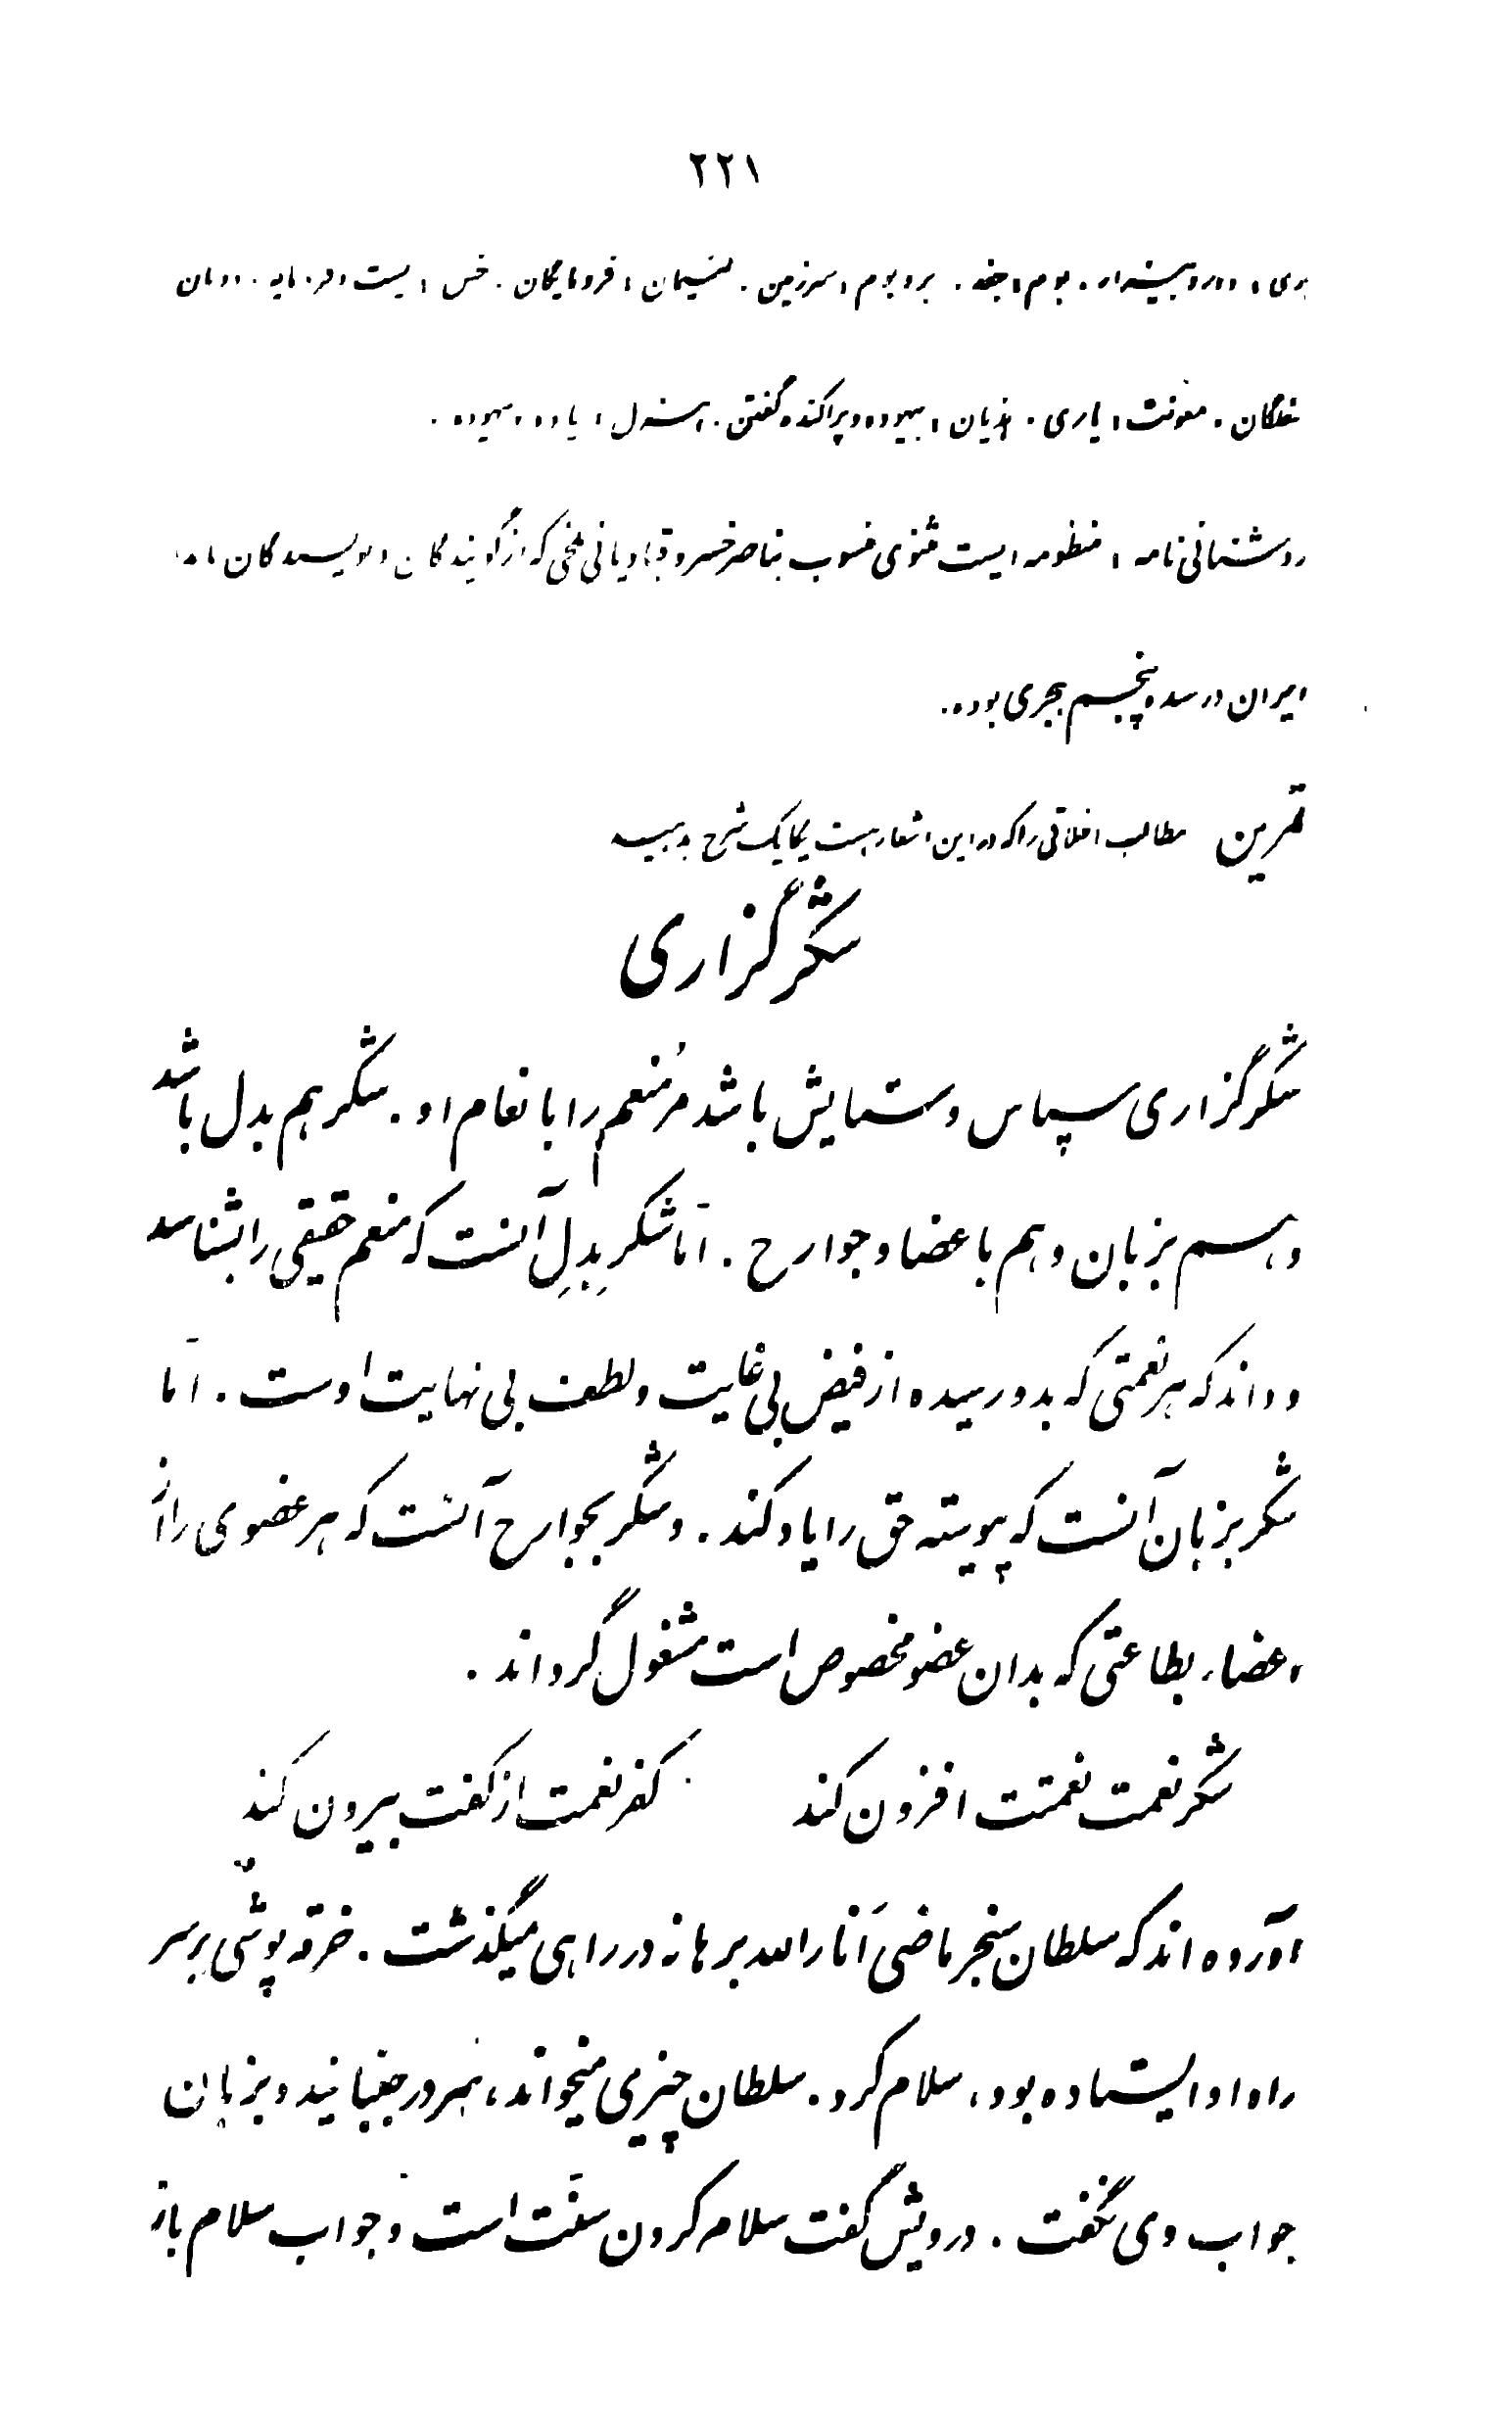 ۲۲۱
بری ، دور و بیزار . بوم ، جغد . بر و بوم ، سرزمین . لئیمان ، فرومایگان . خس ، پست و فرومایه . دونان
سفلگان . معونت ، یاری . هذیان ، بیهوده و پراکنده گفتن . یاوه ، بیهوده .
روشنائی نامه ، منظومه ایست مثنوی منسوب بناصر خسرو قبادیانی بلخی که از گویندگان و نویسندگان نامدار
ایران در سده پنجم هجری بوده .
تمرین مطالب اخلاقی را که در این اشعار هست یکایک شرح بدهید
شکرگزاری
شکرگزاری سپاس و ستایش باشد مر مُنعم را بانعام او . شکر هم بدل باشد
و هم بزبان و هم باعضا و جوارح . امّا شکر بِدلِ آنست که منعم حقیقی را بشناسد
و داند که هر نعمتی که بدو رسیده از فیض بی غایت و لطف بی نهایت اوست . امّا
شکر بزبان آنست که پیوسته حق را یاد کند . و شکر بجوارح آنست که هر عضوی را از
اعضاء بطاعتی که بدان عضو مخصوص است مشغول گرداند .
شکر نعمت نعمتت افزون کند کفر نعمت از کفت بیرون کند
آورده اند که سلطان سنجر ماضی اَنارالله برهانه در راهی میگذشت . خرقه پوشی بر سر
راه او ایستاده بود ، سلام کرد . سلطان چیزی میخواند ، سر در جنبانید و بزبان
جواب وی نگفت . درویش گفت سلام کردن سنّت است و جواب سلام باز